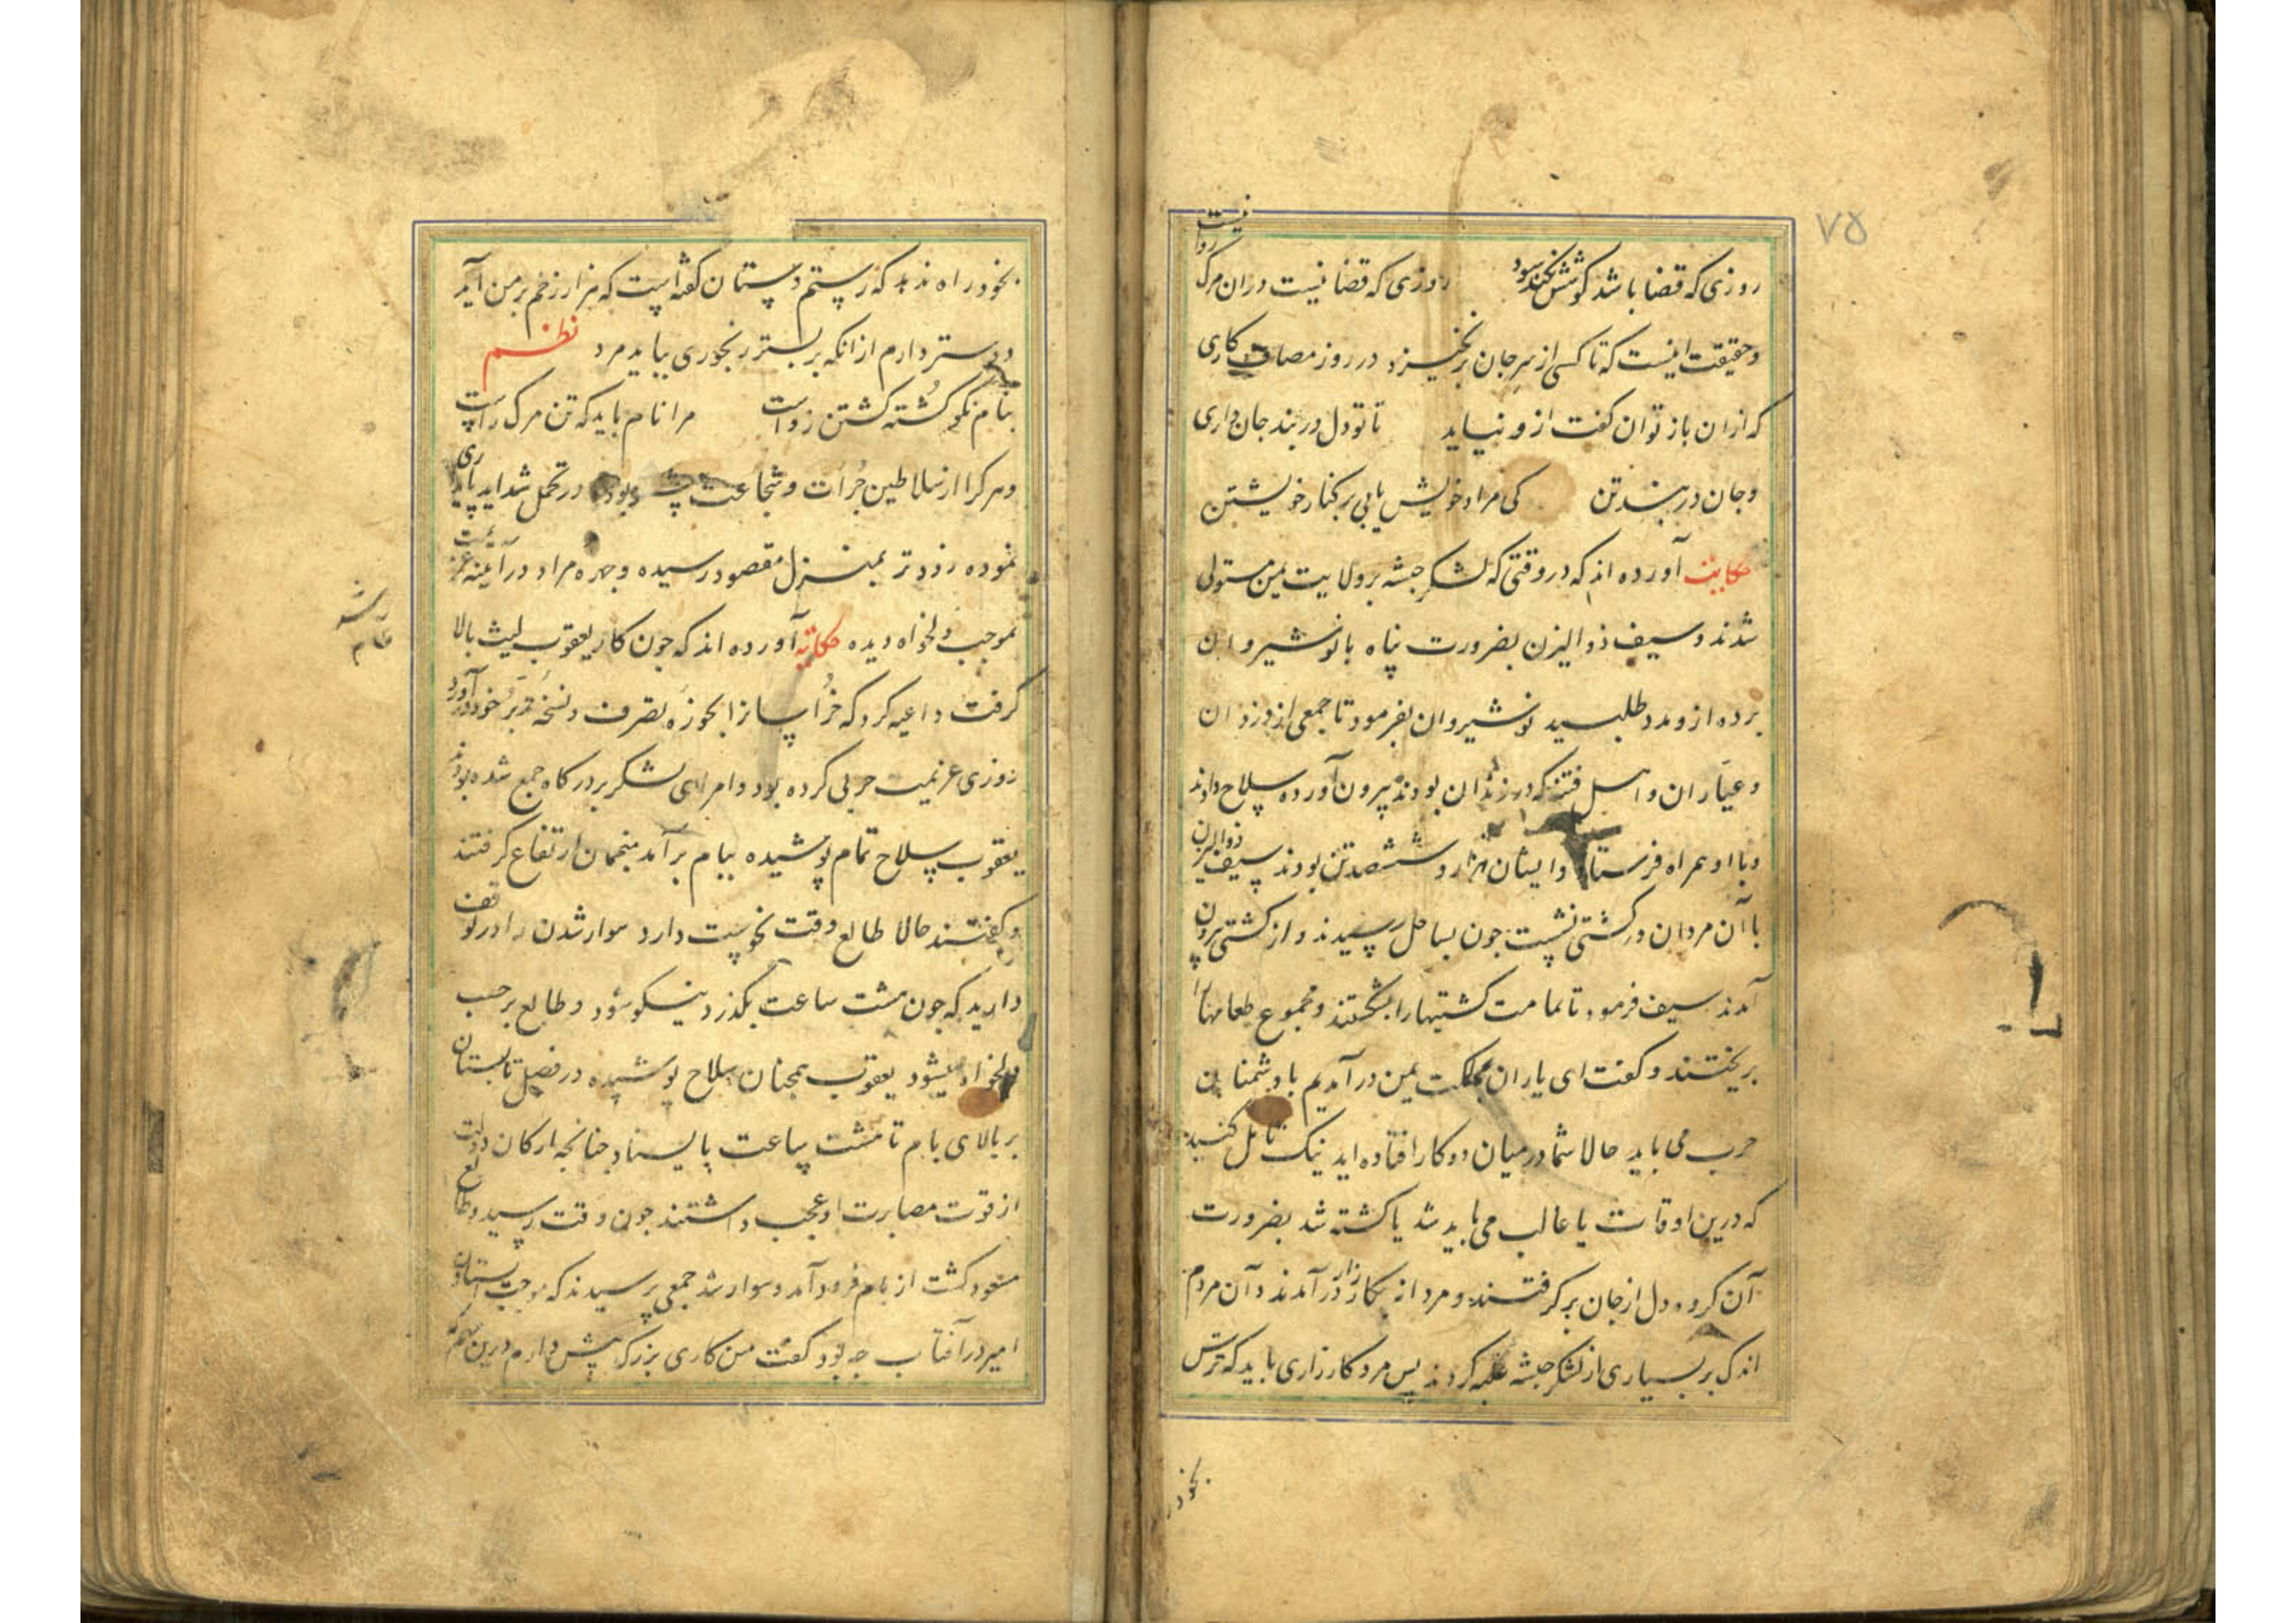 ۷۵
روزی که قضا باشد کوشش نکند سود روزی که قضا نیست دران مرک روا نیست
و حقیقت اینست که تا کسی از سر جان برنخیزد در روز مصاف کاری
که ازان باز توان کفت ازو نیاید تا تو دل در بند جان داری
و جان در بند تن کی مراد خویش یابی بر کنار خویشتن
حکایت آورده اند که در وقتی که لشکر حبشه بر ولایت یمن مستولی
شدند و سیف ذوالیزن بضرورت پناه بانوشیروان
برده ازو مدد طلبید نوشیروان بفرمود تا جمعی از دزدان
و عیاران و اهل فتنه که در زندان بودند بیرون آورده سلاح دادند
و با او همراه فرستاد و ایشان هزار و ششصد تن بودند سیف ذوالیزن
با آن مردان در کشتی نشست جون بساحل رسیدند و از کشتی بیرون
آمدند سیف فرمود تا تمامت کشتیها را بشکستند و مجموع طعامها را
بریختند و کفت ای یاران بمملکت یمن درآمدیم با دشمنان
حرب می باید حالا شما در میان دو کار افتاده اید نیک تامل کنید
که درین اوقات یا غالب می باید شد یا کشته شد بضرورت
آن کروه دل از جان برکرفتند و مردانه بکارزار درآمدند و آن مردم
اندک بر بسیاری از لشکر حبشه غلبه کردند پس مرد کارزاری باید که ترس
بخود
بخود راه ندهد که رستم دستان کفته است که هزار زخم بر من آید
دوستر دارم از انکه بر بستر رنجوری بباید مرد نظم
بنام نکو کشته کشتن رواست مرا نام باید که تن مرک راست
و هر کرا از سلاطین جرأت و شجاعت بوده در تحمل شداید پایداری
نموده زودتر بمنزل مقصود رسیده و جهره مراد در آینه عزیمت
بموجب دلخواه دیده حکایة آورده اند که جون کار یعقوب لیث بالا
کرفت داعیه کرد که خراسانرا بحوزه تصرف و نسخه تدبیر خود درآورد
روزی عزیمت حربی کرده بود و امرای لشکر بر درکاه جمع شده بودند
یعقوب سلاح تمام پوشیده ببام برآمد منجمان ارتفاع کرفتند
و کفتند حالا طالع وقت نحوست دارد سوار شدن را در توقف
دارید که جون هشت ساعت بکذرد نیکو شود و طالع بر حسب
دلخواه میشود یعقوب همجنان سلاح پوشیده در فصل تابستان
بر بالای بام تا هشت ساعت بایستاد جنانجه ارکان دولت
از قوت مصابرت او عجب داشتند جون وقت رسید و طالع
مسعود کشت از بام فرود آمد و سوار شد جمعی پرسیدند که موجب ایستادن
امیر در آفتاب جه بود کفت من کاری بزرک پیش دارم درین